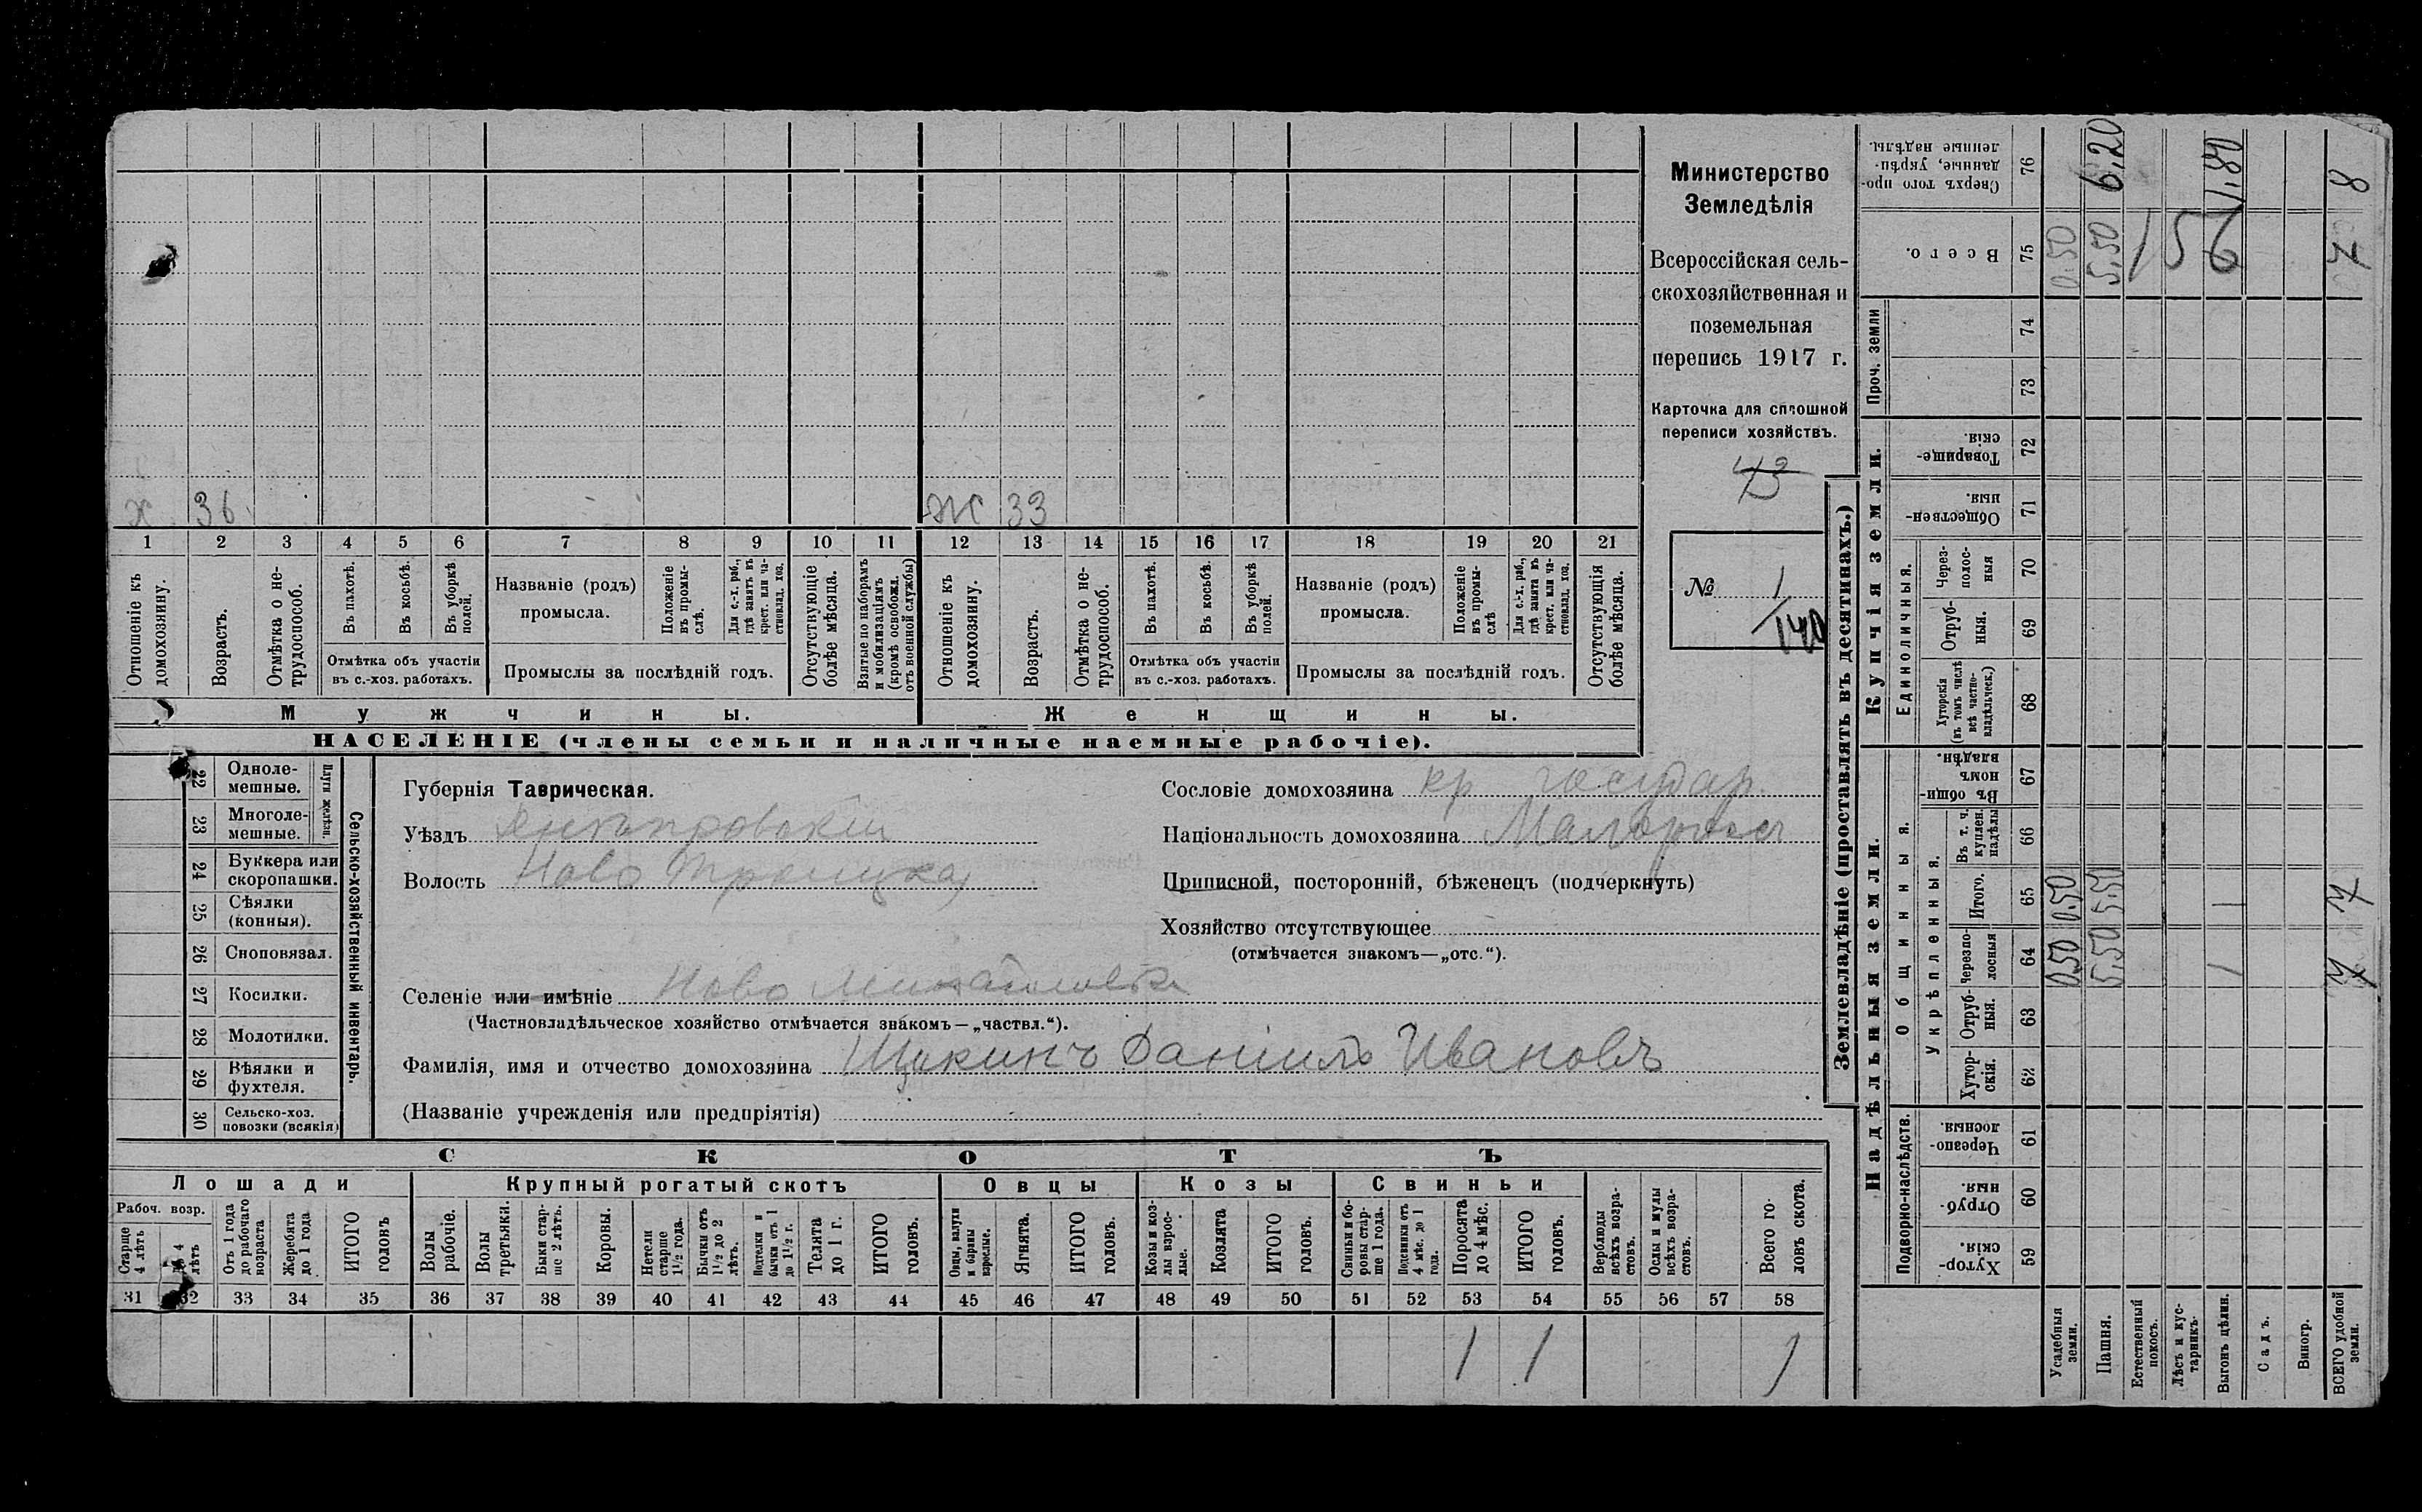 Министерство
Земледѣлія
Всероссійская сель-
скохозяйственная и
поземельная
перепись 1917 г.
Карточка для сплошной
переписи хозяйствъ.
43
№ 1
140
х 36 Ж 33
1 2 3 4 5 6 7 8 9 10 11 12 13 14 15 16 17 18 19 20 21
Отношеніе къ домохозяину.
Возрастъ.
Отмѣтка о не-трудоспособ.
Въ пахотѣ.
Въ косьбѣ.
Въ уборкѣ полей.
Отмѣтка объ участіи
въ с.-хоз. работахъ.
Названіе (родъ)
промысла.
Положеніе въ промы-слѣ.
Для с.-х. раб., гдѣ занятъ въ крест. или ча-стновлад. хоз.
Промыслы за послѣдній годъ.
Отсутствующіе болѣе мѣсяца.
Взятые по наборамъ и мобилизаціямъ (кромѣ освобожд. отъ военной службы)
Отношеніе къ домохозяину.
Возрастъ.
Отмѣтка о не-трудоспособ.
Въ пахотѣ.
Въ косьбѣ.
Въ уборкѣ полей.
Отмѣтка объ участіи
въ с.-хоз. работахъ.
Названіе (родъ)
промысла.
Положеніе въ промы-слѣ
Для с.-х. раб., гдѣ занятъ въ крест. или ча-стновлад. хоз.
Промыслы за послѣдній годъ.
Отсутствующія болѣе мѣсяца.
Мужчины.
Женщины.
НАСЕЛЕНІЕ (члены семьи и наличные наемные рабочіе).
22 Одноле-мешные.
23 Многоле-мешные.
Плуги желѣзн.
24 Буккера или скоропашки.
25 Сѣялки (конныя).
26 Сноповязал.
27 Косилки.
28 Молотилки.
29 Вѣялки и фухтеля.
30 Сельско-хоз. повозки (всякія)
Сельско-хозяйственный инвентарь.
Губернія Таврическая.
Уѣздъ Днѣпровскій
Волость Ново Троицкая
Сословіе домохозяина кр государ.
Національность домохозяина Малоросъ
Приписной, посторонній, бѣженецъ (подчеркнуть)
Хозяйство отсутствующее
(отмѣчается знакомъ—„отс.“).
Селеніе или имѣніе Ново
(Частновладѣльческое хозяйство отмѣчается знакомъ—„частвл.“).
Фамилія, имя и отчество домохозяина Щекинъ Даніилъ Ивановъ
(Названіе учрежденія или предпріятія)
СКОТЪ
Лошади
Крупный рогатый скотъ
Овцы
Козы
Свиньи
Рабоч. возр.
Старше 4 лѣтъ
До 4 лѣтъ
Отъ 1 года до рабочаго возраста
Жеребята до 1 года
ИТОГО головъ
Волы рабочіе.
Волы третьяки.
Быки стар-ше 2 лѣтъ.
Коровы.
Нетели старше 1½ года.
Бычки отъ 1½ до 2 лѣтъ.
Подтелки и бычки отъ 1 до 1½ г.
Телята до 1 г.
ИТОГО головъ.
Овцы, валухи и бараны взрослые.
Ягнята.
ИТОГО головъ.
Козы и коз-лы взрос-лые.
Козлята
ИТОГО головъ.
Свиньи и бо-ровы стар-ше 1 года.
Подсвинки отъ 4 мѣс. до 1 года.
Поросята до 4 мѣс.
ИТОГО головъ.
Верблюды всѣхъ возра-стовъ.
Ослы и мулы всѣхъ возра-стовъ.
Всего го-ловъ скота.
31 32 33 34 35 36 37 38 39 40 41 42 43 44 45 46 47 48 49 50 51 52 53 54 55 56 57 58
1 1 1
Землевладѣніе (проставлять въ десятинахъ.)
Надѣльныя земли.
Купчія земли.
Проч. земли
Подворно-наслѣдств.
Общинныя.
Укрѣпленныя.
Единоличныя.
Хутор-скія. 59
Отруб-ныя. 60
Черезпо-лосныя. 61
Хутор-скія. 62
Отруб-ныя. 63
Черезпо-лосныя 64
Итого. 65
Въ т. ч. куплен. надѣлы 66
Въ общин-номъ владѣн. 67
Хуторскія (въ томъ числѣ всѣ частно-владѣльческ.) 68
Отруб-ныя. 69
Через-полос-ныя 70
Обществен-ныя. 71
Товарище-скія. 72
73
74
Всего. 75
Сверхъ того про-данные, укрѣп-ленные надѣлы. 76
Усадебныя земли. 0.50 0.50 0.50
Пашня. 5,50 5.50 5,50 6,20
Естественный покосъ.
Лѣсъ и кус-тарникъ.
Выгонъ цѣлин. 1 1 1,80
Садъ.
Виногр.
ВСЕГО удобной земли. 7 7 7 8
156